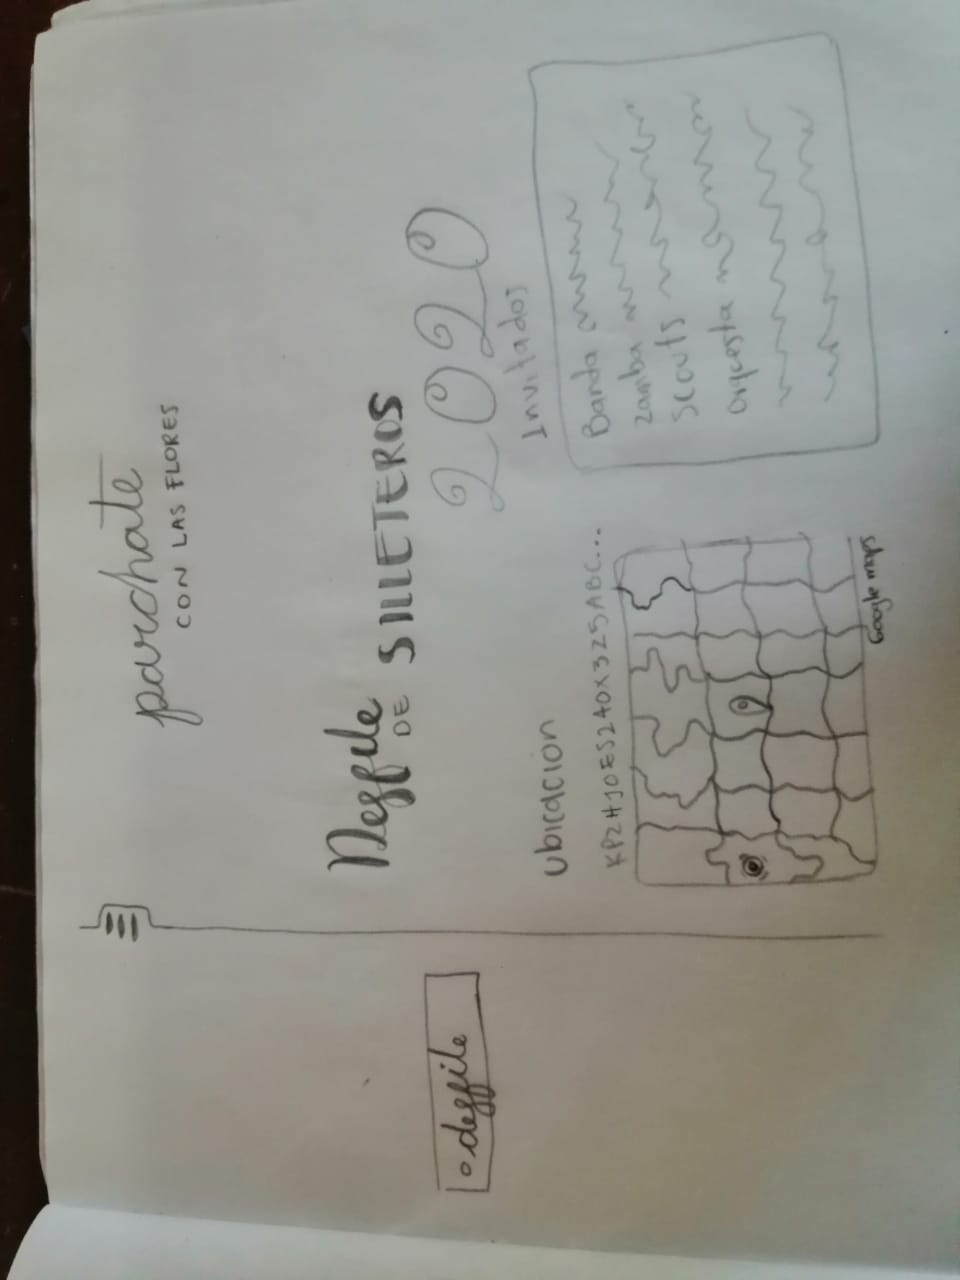 parchate
CON LAS FLORES
Desfile DE SILLETEROS
2020
desfile
ubicacion
KPZHJOES240X325ABC...
Google maps
Invitados
Banda
zamba
scouts
orquesta